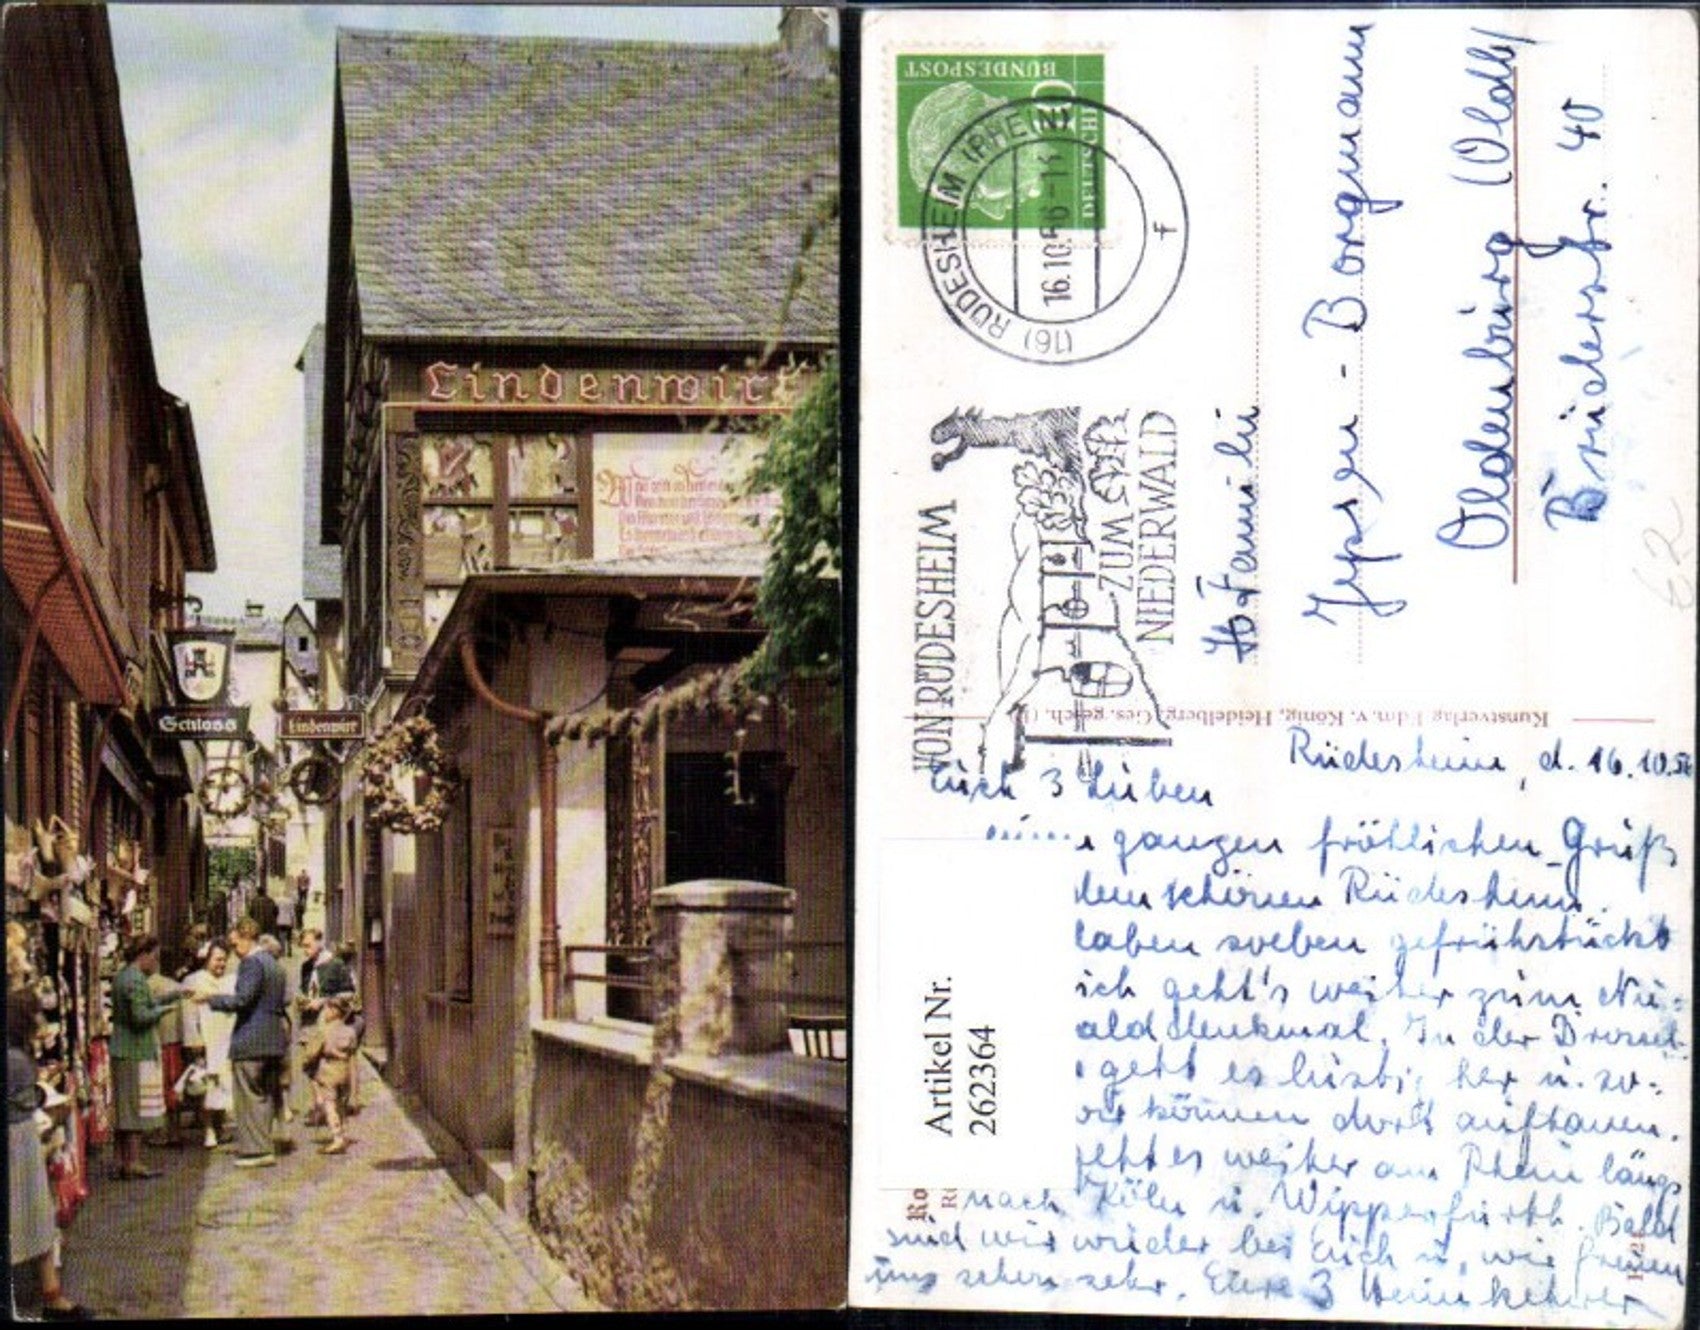 Lindenwirt
Schloss
Lindenwirt
DEUTSCHE
BUNDESPOST
10
(16) RÜDESHEIM (RHEIN)
16.10.56-14
F
VON RÜDESHEIM
ZUM
NIEDERWALD
Familie
Jepsen - Borgmann
Oldenburg (Oldb)
Brüderstr. 40
62
Kunstverlag Edm. v. König, Heidelberg. Ges. gesch.
Artikel Nr.
262364
Rüdesheim, d. 16.10.56
Euch 3 Lieben
ganzen fröhlichen Gruß
dem schönen Rüdesheim.
haben soeben gefrühstückt
geht's weiter zum Nie-
walddenkmal. In der Drossel-
geht es lustig her u. so-
können dort auftauen.
geht es weiter am Rhein längs
nach Köln u. Wipperfürth. Bald
sind wir wieder bei Euch u. wir freuen
uns schon sehr. Eure 3 Heimkehrer